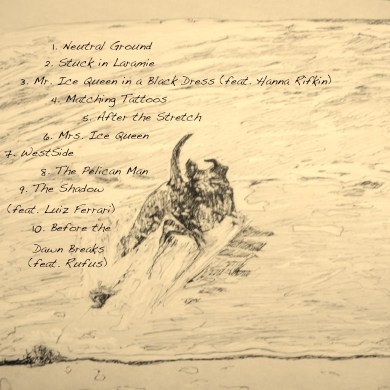 1. Neutral Ground
2. Stuck in Laramie
3. Mr. Ice Queen in a Black Dress (feat. Hanna Rifkin)
4. Matching Tattoos
5. After the Stretch
6. Mrs. Ice Queen
7. WestSide
8. The Pelican Man
9. The Shadow
(feat. Luiz Ferrari)
10. Before the
Dawn Breaks
(feat. Rufus)